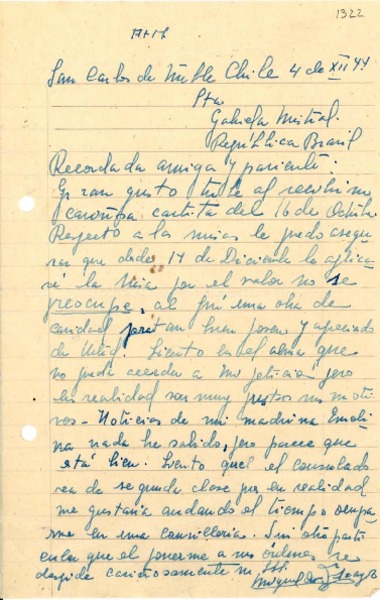 1322
San Carlos de Ñuble Chile 4 de XII 44
Sta
Gabriela Mistral.
República Brasil
Recordada amiga y parienta:
Gran gusto tube al recibir su
cariñosa cartita del 16 de Octubre
Respecto a las misas le puedo asegu
rar que desde 17 de Diciembre la aplica
ré la Misa por el valor no se
preocupe, al fin es una obra de
caridad para tan buen joven y apreciado
de Uted. Siento en el alma que
no pude acceder a su petición pero
en realidad son muy justos sus moti
vos - Noticias de mi madrina Emeli
na nada he sabido, pero parece que
está bien. Siento que el consulado
sea de segunda clase por en realidad
me gustaria andando el tiempo ocupar
me en una consilleria. Sin otro parti
cular que el ponerme a sus órdenes se
despide cariñosamente su SSS.
Miguel